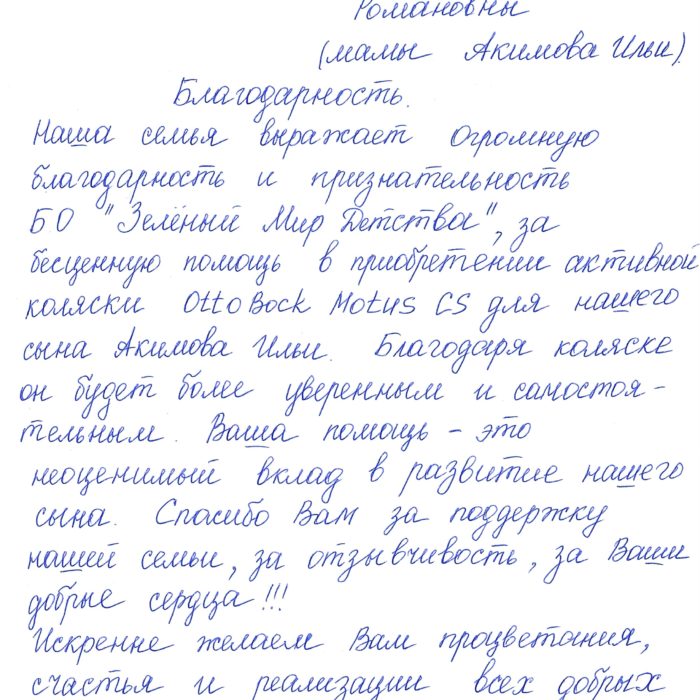 Романовны
(мамы Акимова Ильи).
Благодарность.
Наша семья выражает огромную
благодарность и признательность
БО "Зелёный Мир Детства", за
бесценную помощь в приобретении активной
коляски Otto Bock Motus CS для нашего
сына Акимова Ильи. Благодаря коляске
он будет более уверенным и самостоя-
тельным. Ваша помощь - это
неоценимый вклад в развитие нашего
сына. Спасибо Вам за поддержку
нашей семьи, за отзывчивость, за Ваши
добрые сердца!!!
Искренне желаем Вам процветания,
счастья и реализации всех добрых